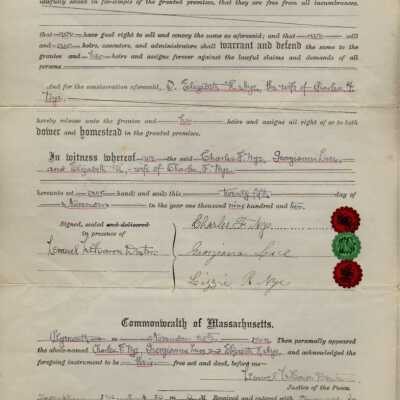 lawfully seized in fee-simple of the granted premises, that they are free from all incumbrances,
that we have good right to sell and convey the same as aforesaid; and that we will
and our heirs, executors, and administrators shall warrant and defend the same to the
grantee and her heirs and assigns forever against the lawful claims and demands of all
persons
And for the consideration aforesaid, I, Elizabeth R. Nye, the wife of Charles F.
Nye,
hereby release unto the grantee and her heirs and assigns all right of or to both
dower and homestead in the granted premises.
In witness whereof we the said Charles F. Nye, Georgianna
and Elizabeth R., wife of Charles F. Nye,
hereunto set our hands and seals this twenty fifth day of
November in the year one thousand nine hundred and
Signed, sealed and delivered
in presence of
Charles F. Nye
Lemuel LeBaron
Lizzie R. Nye
Commonwealth of Massachusetts.
Plymouth ss. November 25th Then personally appeared
the above-named Charles F. Nye, Georgianna and Elizabeth R. Nye, and acknowledged the
foregoing instrument to be their free act and deed, before me—
Lemuel LeBaron
Justice of the Peace.
Received and entered with